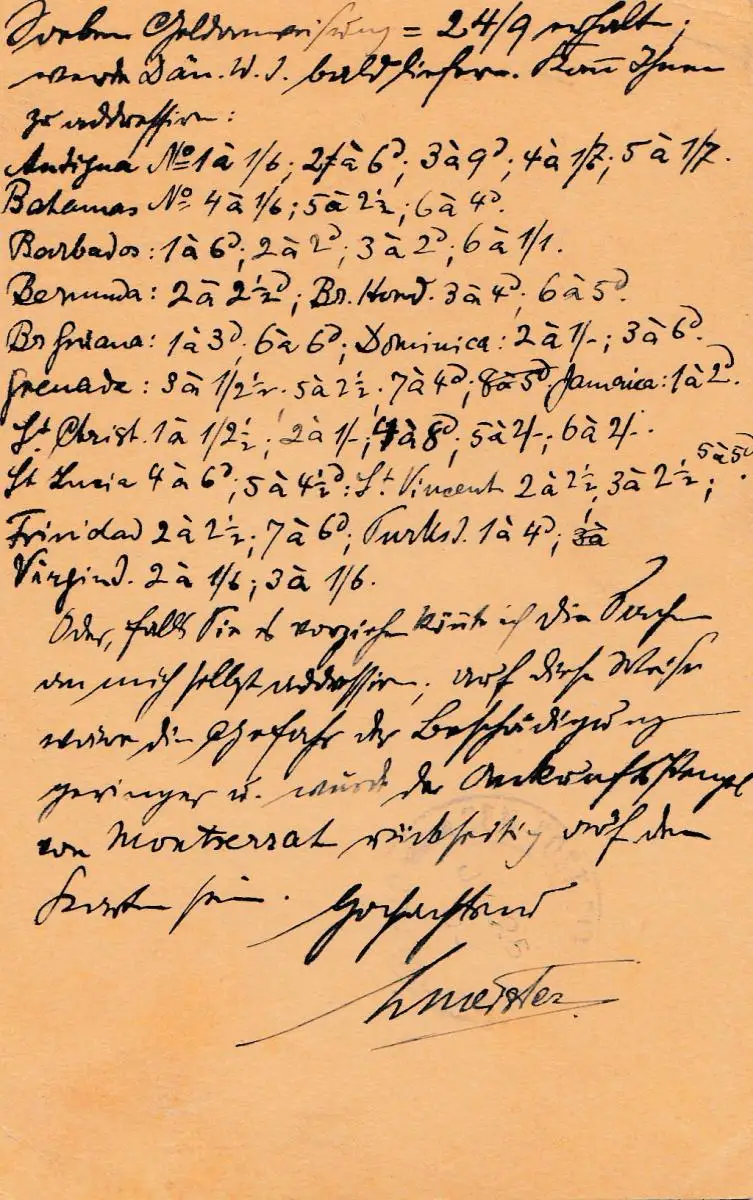 Soeben Geldanweisung = 24/9 erhalten;
werde Dän. W. I. bald liefern. Kann Ihnen
zu addressiren:
Antigua No 1 à 1/6; 2 à 6d; 3 à 9d; 4 à 1/7; 5 à 1/7.
Bahamas No 4 à 1/6; 5 à 2½; 6 à 4d.
Barbados: 1 à 6d; 2 à 2d; 3 à 2d; 6 à 1/1.
Bermuda: 2 à 2½d; Br. Hond. 3 à 4d; 6 à 5d.
Br Guiana: 1 à 3d; 6 à 6d; Dominica: 2 à 1/-; 3 à 6d.
Grenada: 3 à 1/2½. 5 à 2½; 7 à 4d; 8 à 5d Jamaica: 1 à 2d.
St. Christ. 1 à 1/2½; 2 à 1/-; 4 à 8d; 5 à 2/-; 6 à 2/-.
St Lucia 4 à 6d; 5 à 4½d: St. Vincent 2 à 2½, 3 à 2½; 5 à 5d.
Trinidad 2 à 2½; 7 à 6d; Turks I. 1 à 4d; 3 à
Virgin I. 2 à 1/6; 3 à 1/6.
Oder, falls Sie es vorziehen könnte ich die Sachen
an mich selbst addressiren; auf diese Weise
wäre die Gefahr der Beschädigung
geringer u. würde der Ankunftsstempel
von Montserrat rückseitig auf den
Karten sein. Hochachtend